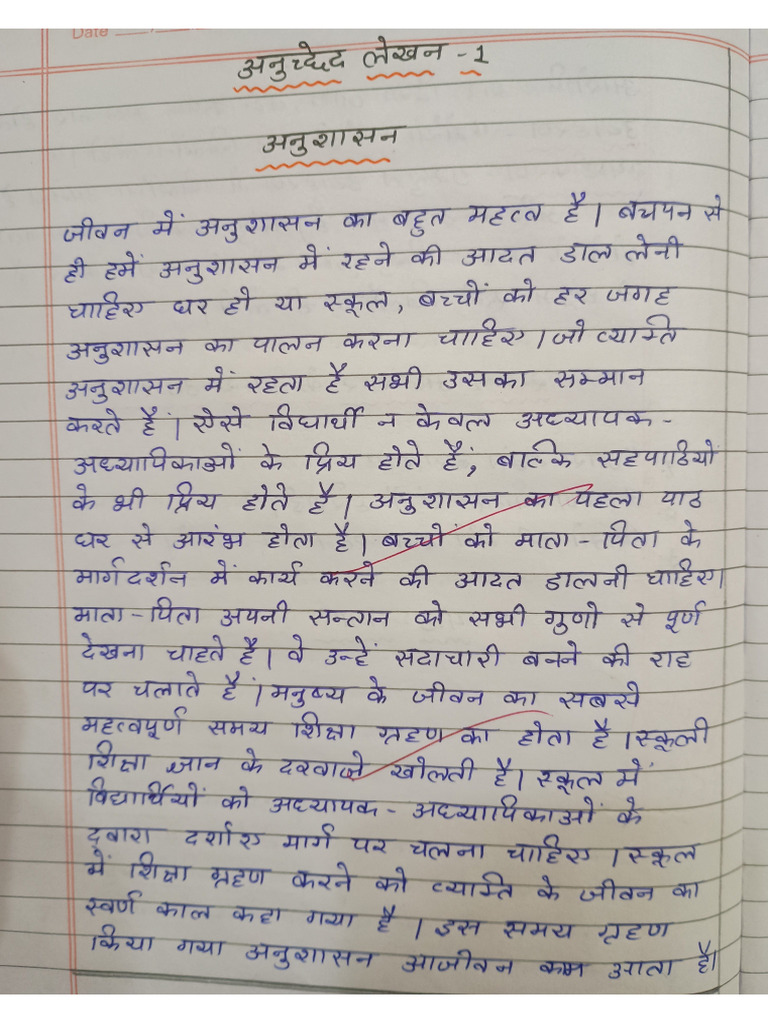 Date
अनुच्छेद लेखन -1
अनुशासन
जीवन में अनुशासन का बहुत महत्व है। बचपन से
ही हमें अनुशासन में रहने की आदत डाल लेनी
चाहिए घर हो या स्कूल, बच्चों को हर जगह
अनुशासन का पालन करना चाहिए। जो व्यक्ति
अनुशासन में रहता है सभी उसका सम्मान
करते हैं। ऐसे विद्यार्थी न केवल अध्यापक-
अध्यापिकाओं के प्रिय होते हैं, बल्कि सहपाठियों
के भी प्रिय होते है। अनुशासन का पहला पाठ
घर से आरंभ होता है। बच्चों को माता-पिता के
मार्गदर्शन में कार्य करने की आदत डालनी चाहिए।
माता-पिता अपनी सन्तान को सभी गुणो से पूर्ण
देखना चाहते है। वे उन्हें सदाचारी बनने की राह
पर चलाते हैं। मनुष्य के जीवन का सबसे
महत्वपूर्ण समय शिक्षा ग्रहण का होता है। स्कूली
शिक्षा ज्ञान के दरवाजे खोलती है। स्कूल में
विद्यार्थियों को अध्यापक-अध्यापिकाओं के
द्वारा दर्शाए मार्ग पर चलना चाहिए। स्कूल
में शिक्षा ग्रहण करने को व्यक्ति के जीवन का
स्वर्ण काल कहा गया है। इस समय ग्रहण
किया गया अनुशासन आजीवन काम आता है।